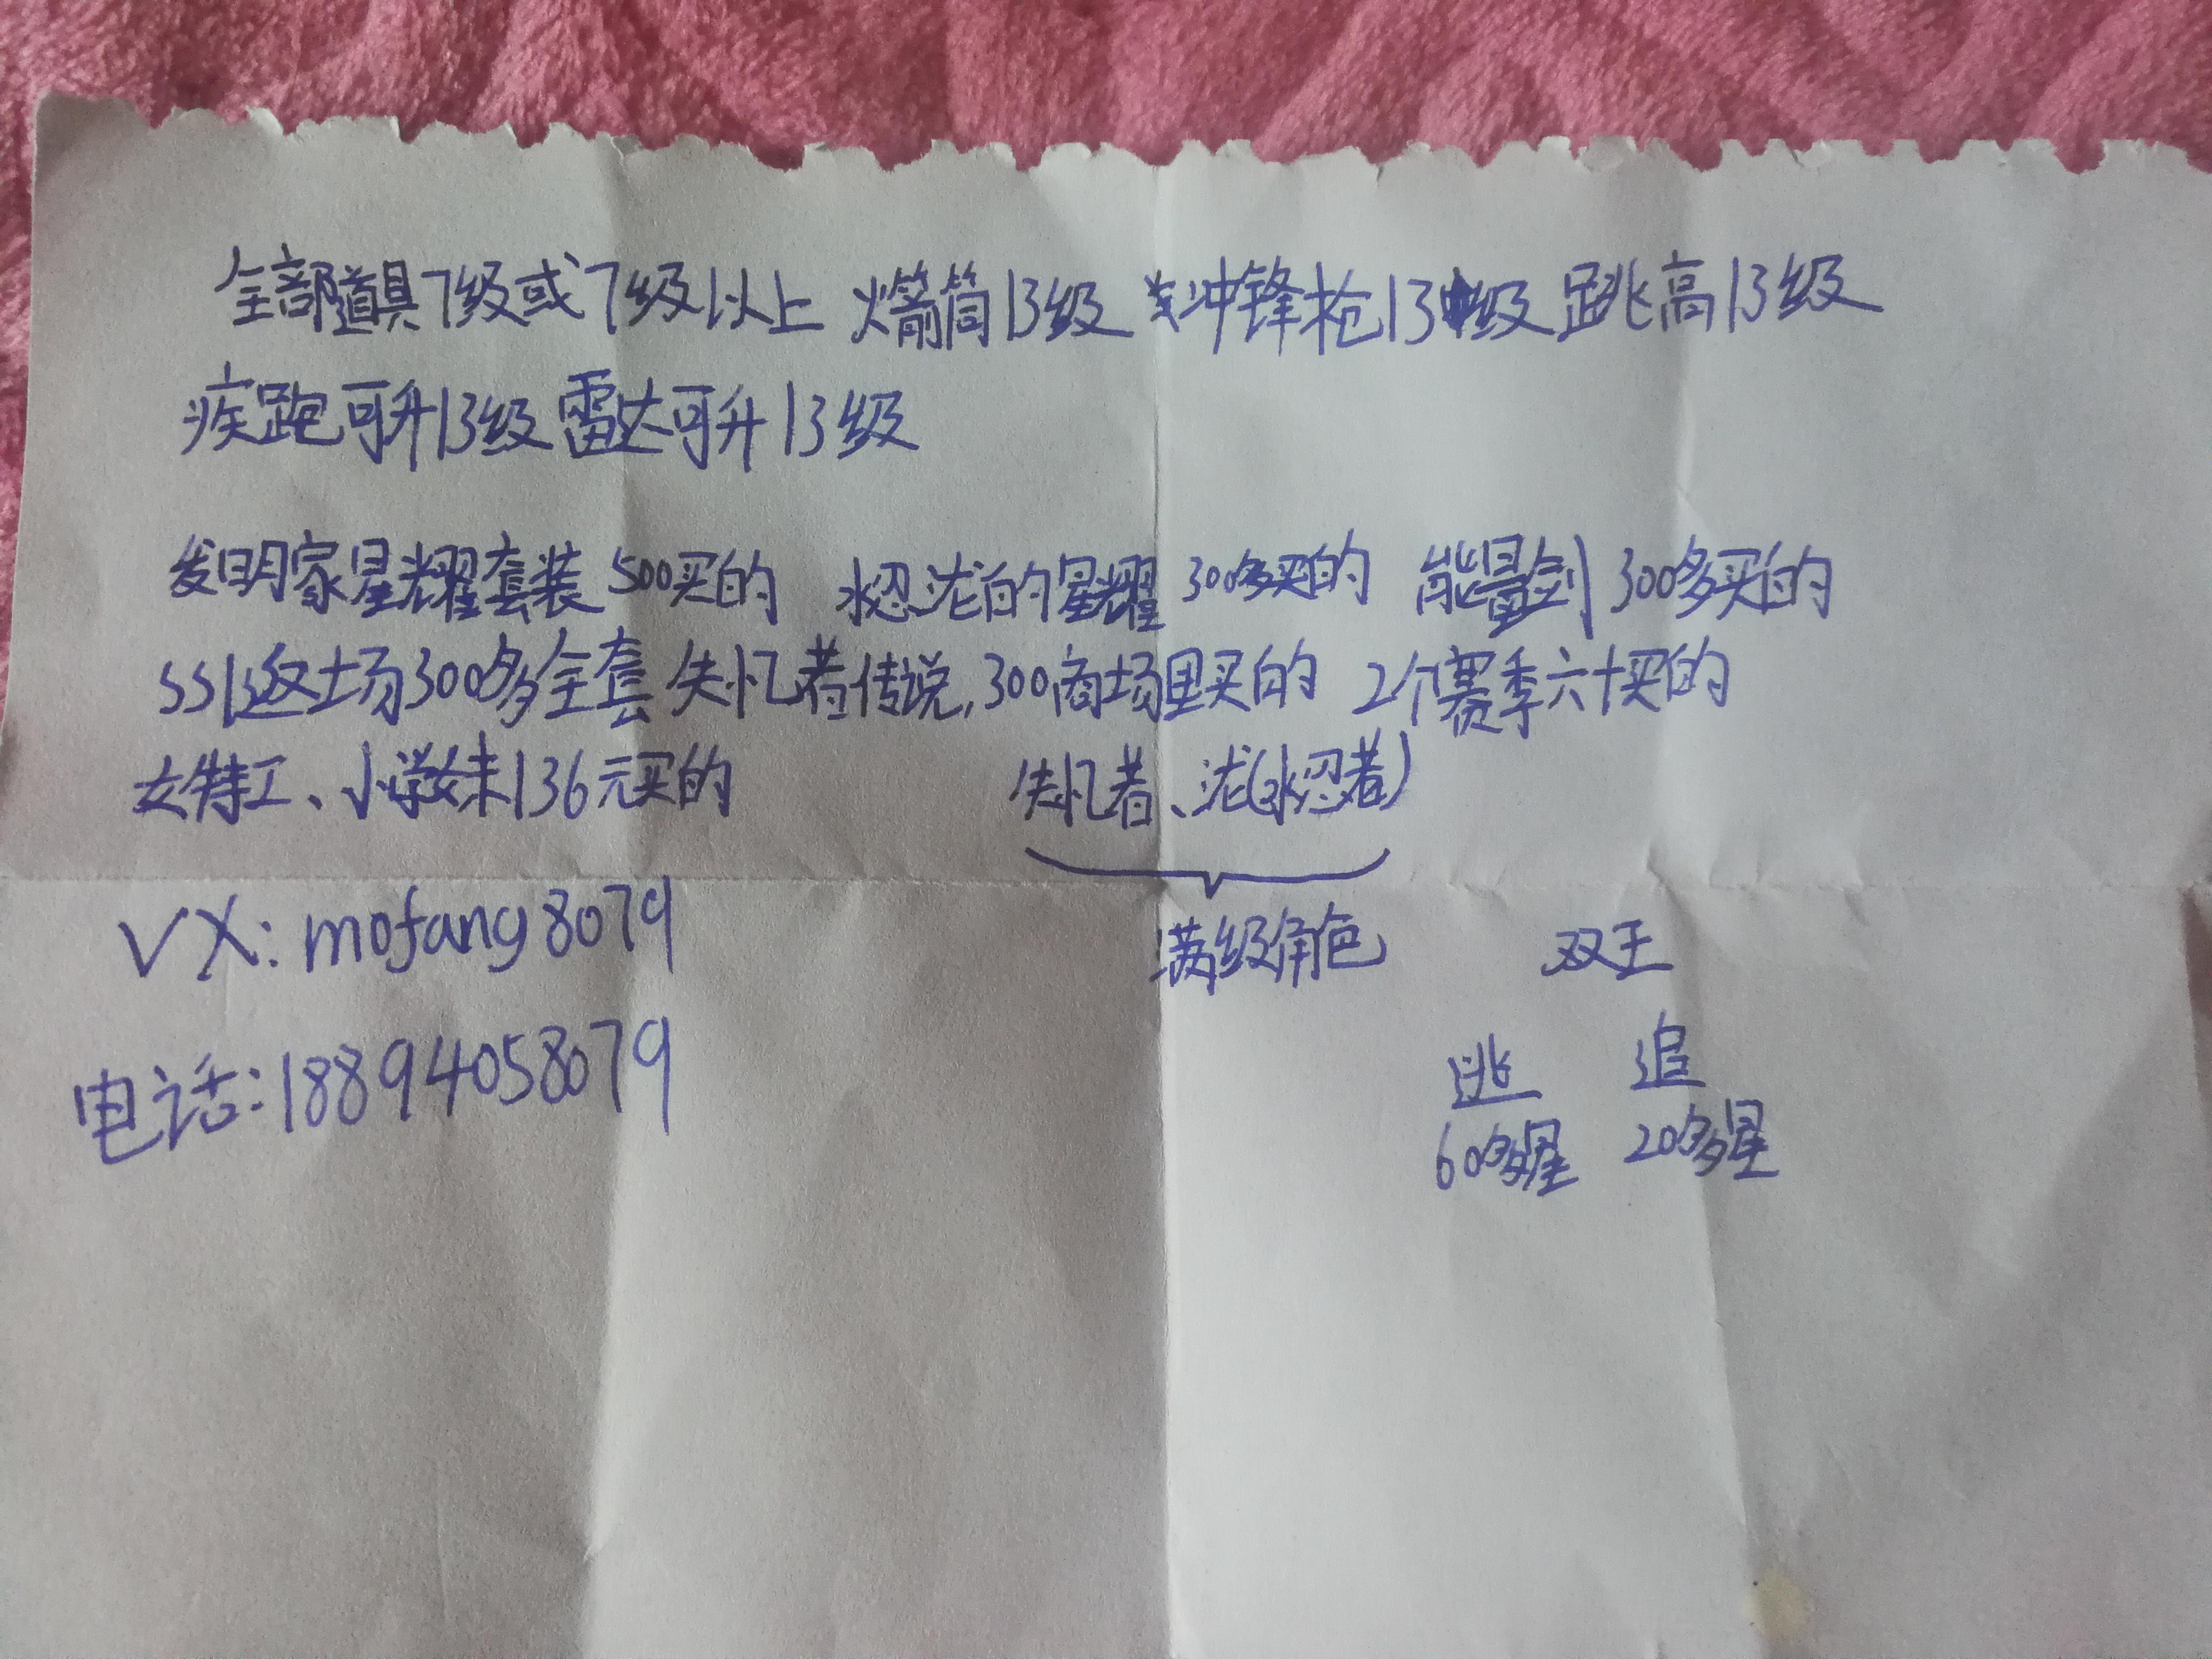 全部道具7级或7级以上 火箭筒13级 冲锋枪13级 跳高13级
疾跑可升13级 雷达可升13级
发明家星耀套装500买的 水忍泷的星耀300多买的 能量剑300多买的
SS1返场300多全套 失忆者传说,300商场里买的 2个赛季六十买的
女特工、小学妹136元买的 失忆者、泷(水忍者)
满级角色 双王
VX:mofang8079
逃 追
电话:18894058079
60多星 20多星